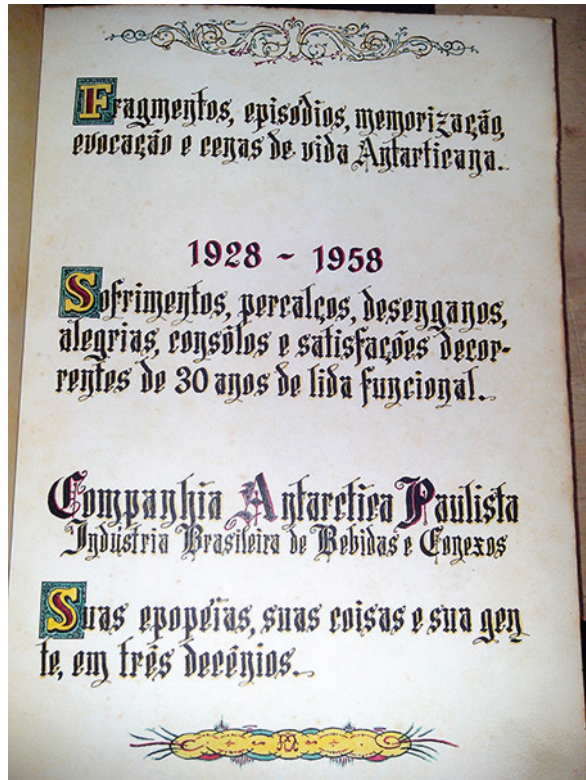 Fragmentos, episodios, memorização,
evocação e cenas de vida Antarticana.
1928 - 1958
Sofrimentos, percalços, desenganos,
alegrias, consôlos e satisfações decor-
rentes de 30 anos de lida funcional.
Companhia Antarctica Paulista
Indústria Brasileira de Bebidas e Conexos
Suas epopéias, suas coisas e sua gen
te, em três decênios.